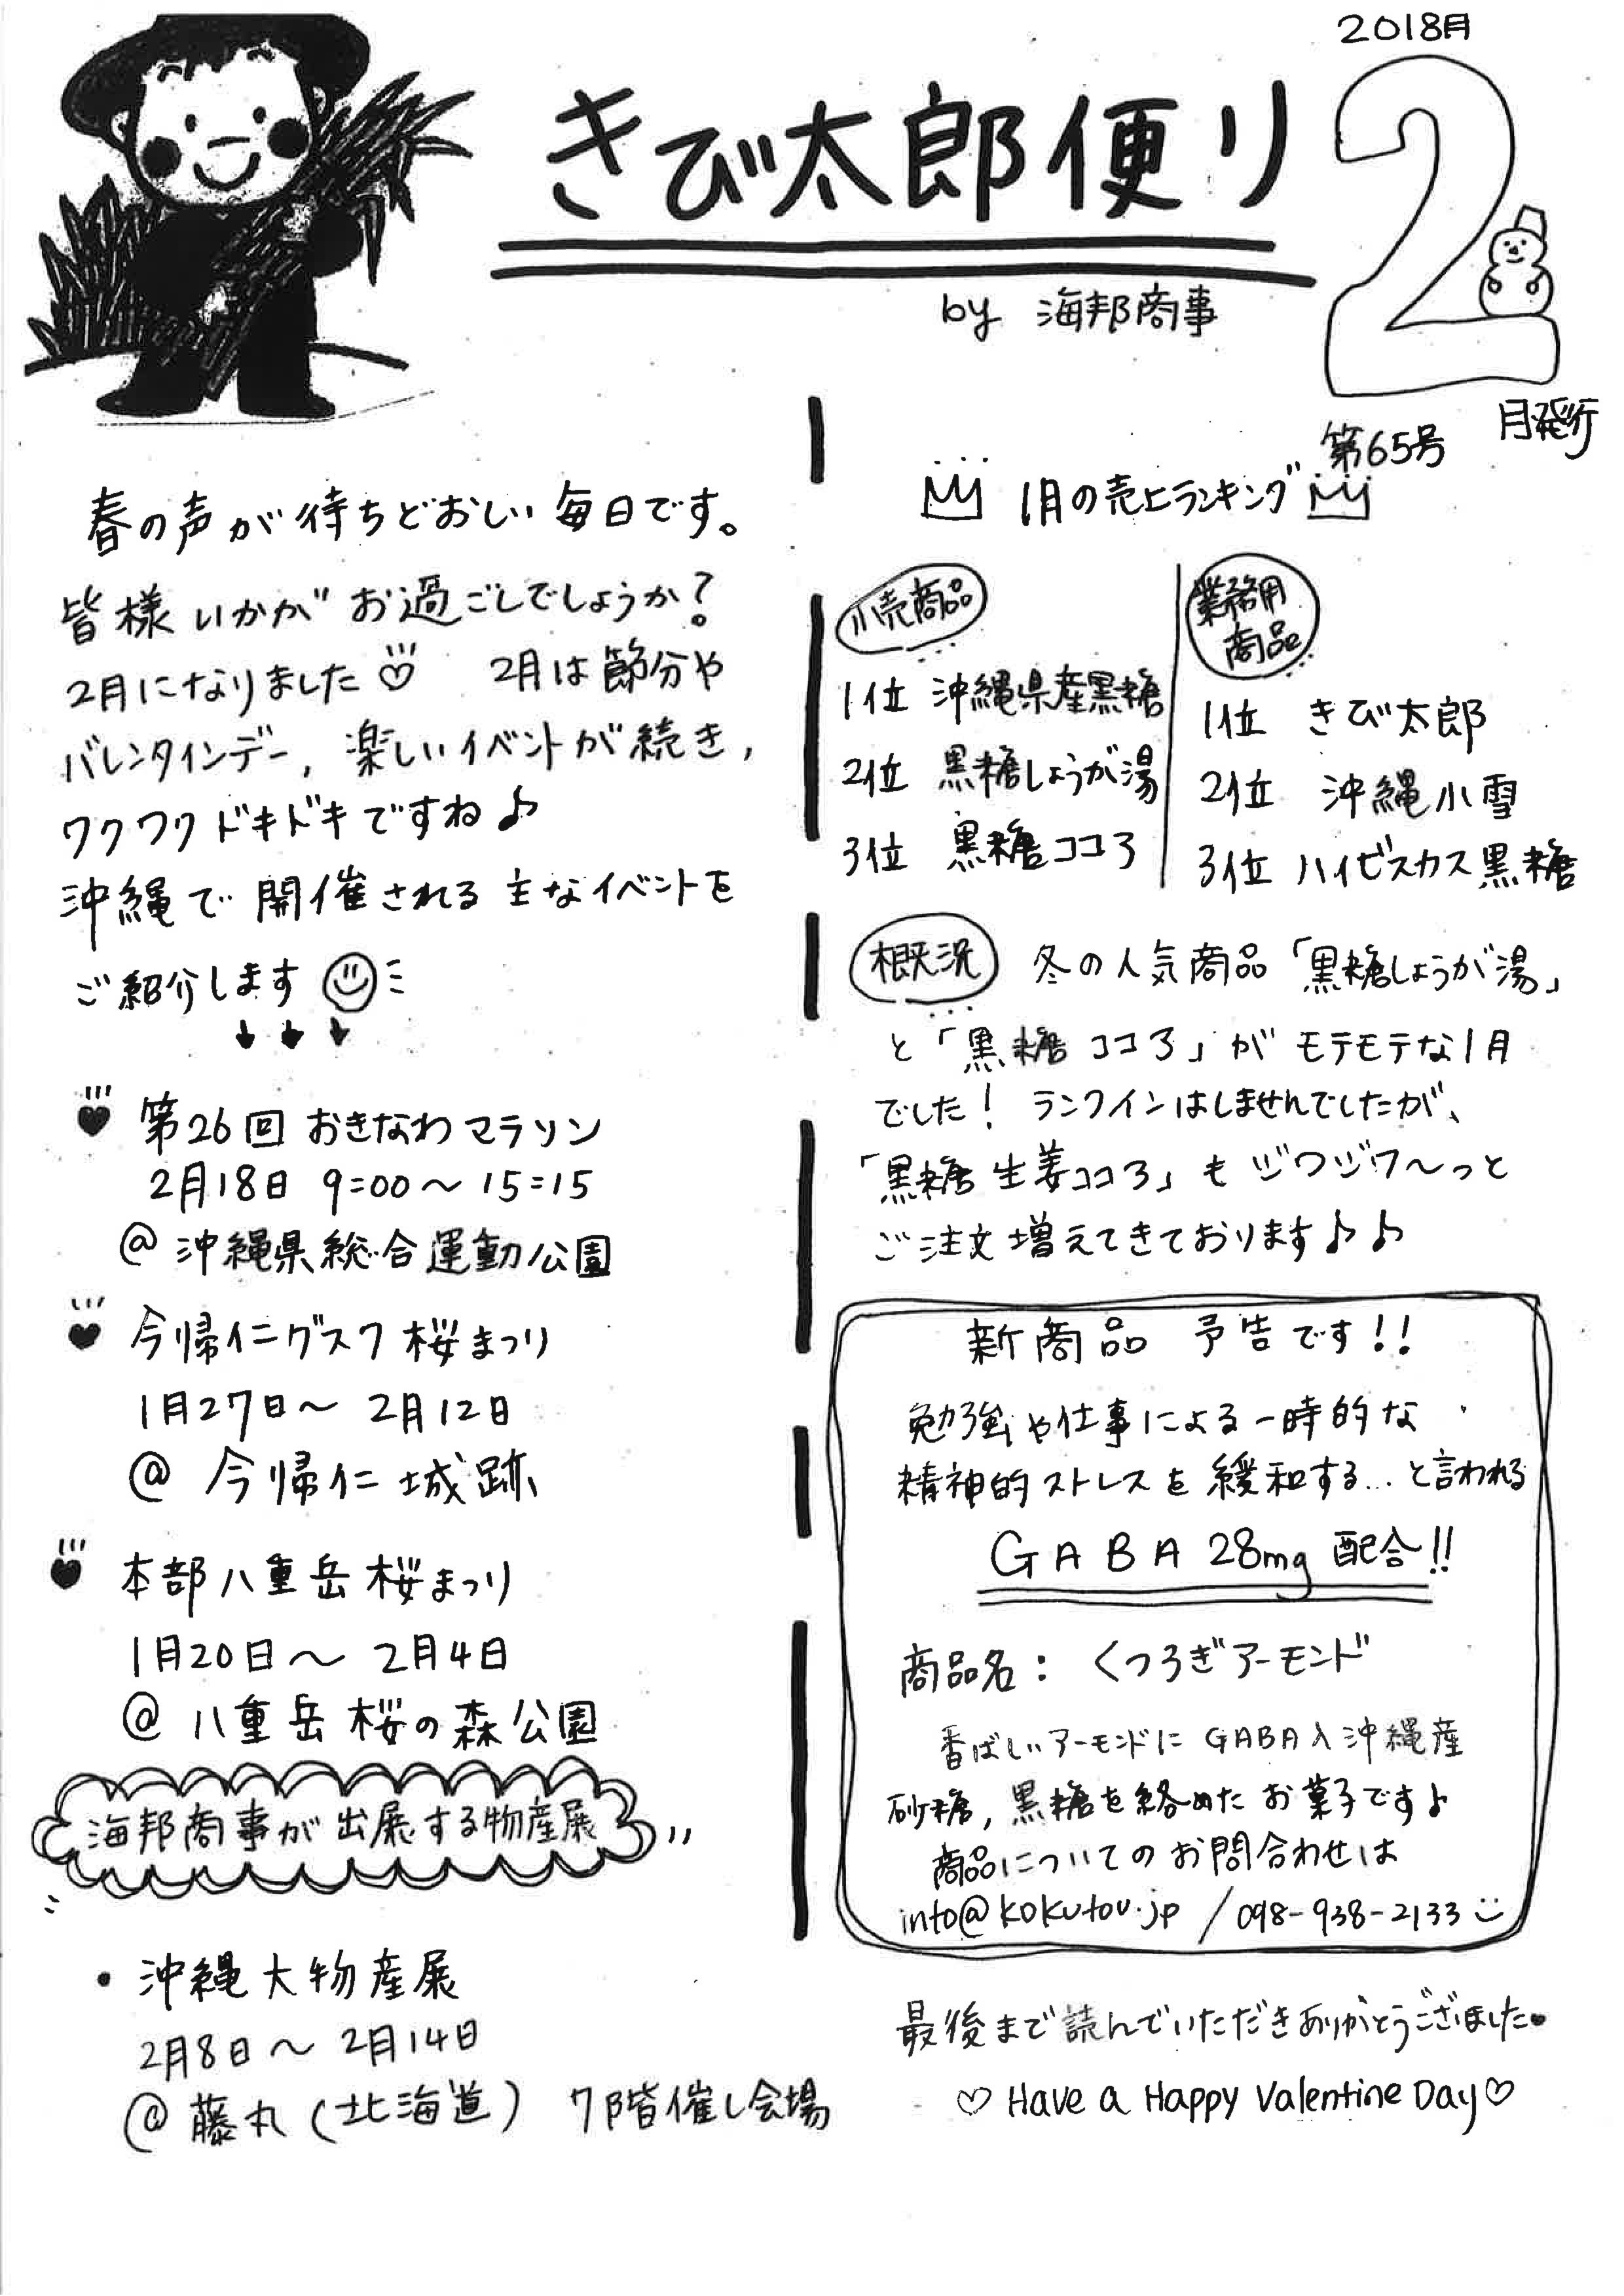 2018月
きび太郎便り
2
by 海邦商事
月発行
第65号
春の声が待ちどおしい毎日です。
皆様いかがお過ごしでしょうか？
2月になりました♡ 2月は節分や
バレンタインデー, 楽しいイベントが続き,
ワクワクドキドキですね♪
沖縄で開催される主なイベントを
ご紹介します
↓↓↓
♥ 第26回おきなわマラソン
2月18日 9:00〜15:15
@沖縄県総合運動公園
♥ 今帰仁グスク桜まつり
1月27日〜2月12日
@今帰仁城跡
♥ 本部八重岳桜まつり
1月20日〜2月4日
@八重岳桜の森公園
海邦商事が出展する物産展
・沖縄大物産展
2月8日〜2月14日
@藤丸(北海道) 7階催し会場
1月の売上ランキング
小売商品
1位 沖縄県産黒糖
2位 黒糖しょうが湯
3位 黒糖ココろ
業務用
商品
1位 きび太郎
2位 沖縄小雪
3位 ハイビスカス黒糖
概況 冬の人気商品「黒糖しょうが湯」
と「黒糖ココろ」がモテモテな1月
でした！ランクインはしませんでしたが、
「黒糖生姜ココろ」もジワジワ〜っと
ご注文増えてきております♪♪
新商品 予告です!!
勉強や仕事による一時的な
精神的ストレスを緩和する...と言われる
GABA 28mg 配合!!
商品名：くつろぎアーモンド
香ばしいアーモンドにGABA入沖縄産
砂糖, 黒糖を絡めたお菓子です♪
商品についてのお問合わせは
info@kokutou.jp /098-938-2133
最後まで読んでいただきありがとうございました♥
♡ Have a Happy Valentine Day♡